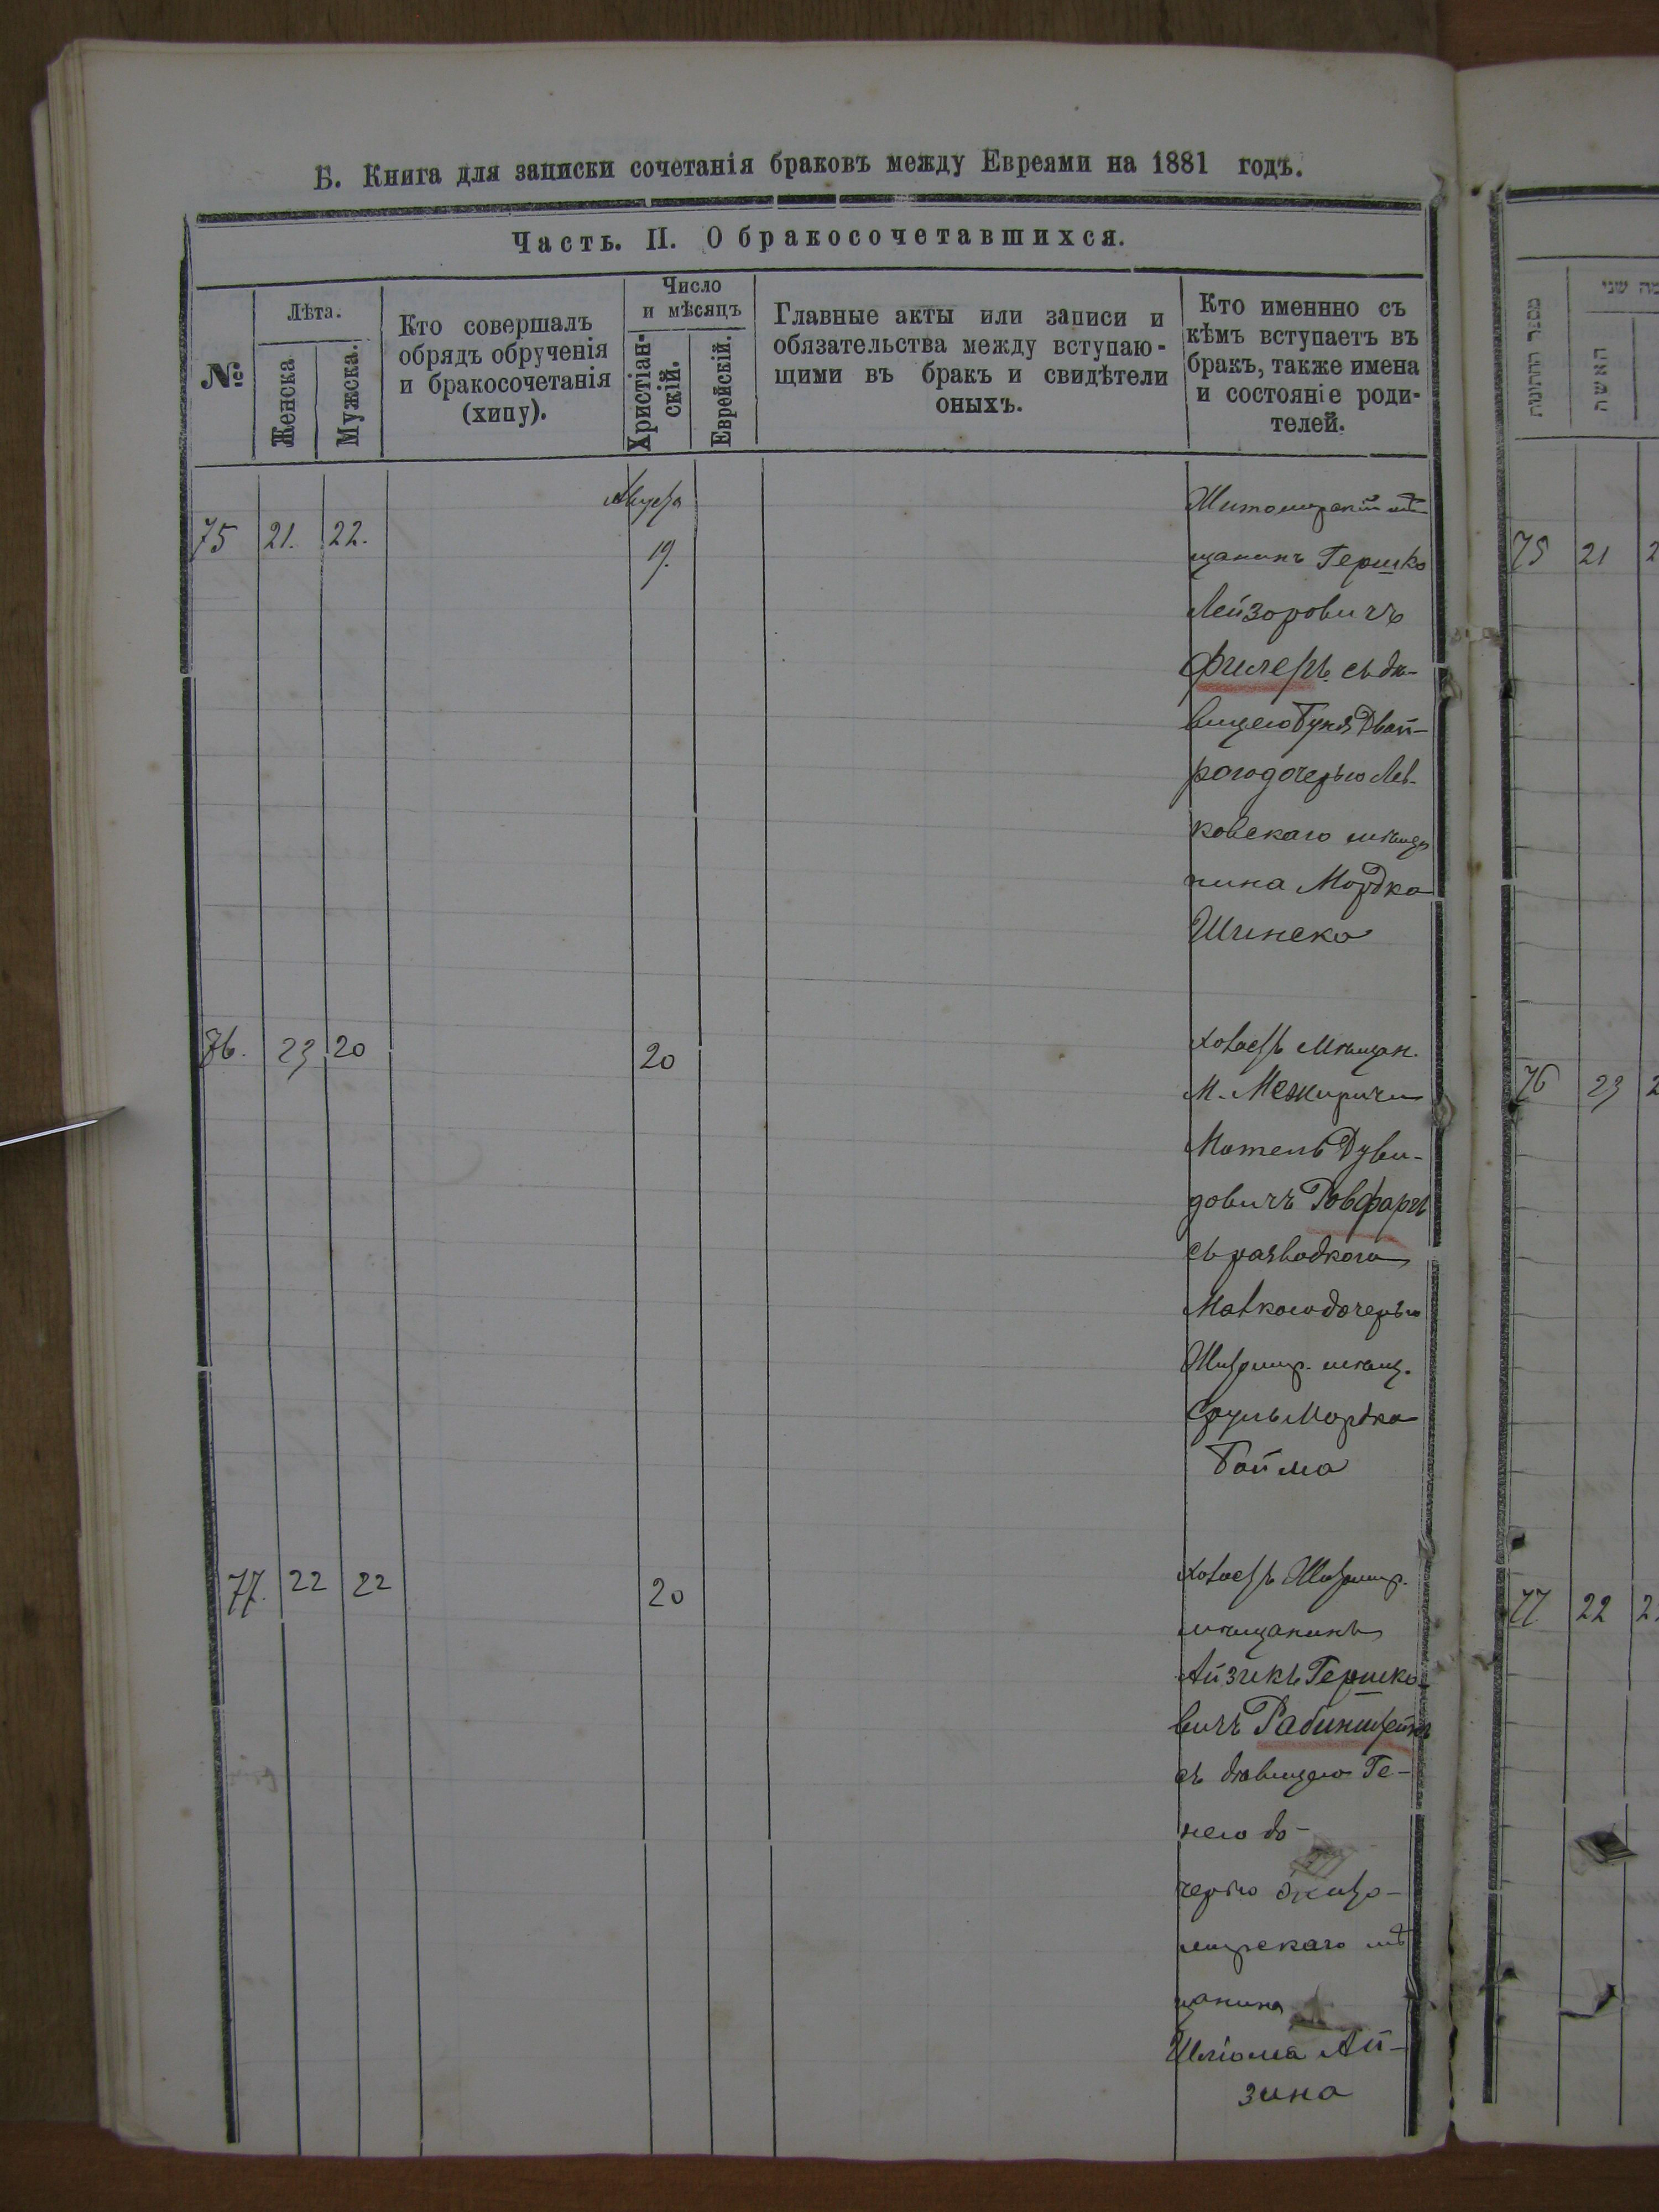 Б. Книга для записки сочетанія браковъ между Евреями на 1881 годъ.
Часть. II. О бракосочетавшихся.
№
Лѣта.
Женска
Мужска.
Кто совершалъ
обрядъ обрученія
и бракосочетанія
(хипу).
Число
и мѣсяцъ
Христіан-
скій.
Еврейскій.
Главные акты или записи и
обязательства между вступаю-
щими въ бракъ и свидѣтели
оныхъ.
Кто именнно съ
кѣмъ вступаетъ въ
бракъ, также имена
и состояніе роди-
телей.
75 21. 22.
Августа
19.
Житомирскій мѣ-
щанинъ Гершко
Лейзоровичъ
съ дѣ-
вицею Буня Двой-
рою дочерью Лев-
ковскаго мѣща
нина Мордка
Шинека
76. 23 20
20
Холостъ Мѣщан.
М. Межиричи
Мотель Дуви-
довичъ
съ разводкою
Малкою дочерью
Житомир. мѣщ.
Сруль Мордка
Бойма
77. 22 22
20
Холостъ Житомир.
мѣщанинъ
Айзикъ Гершко-
вичъ Рабинштейнъ
съ дѣвицею Ге-
нею до-
черью Жито-
мирскаго мѣ
щанина
Шліома Ай-
зина
מספר החתונות
האשה
75 21 2
76 23 2
77 22 2